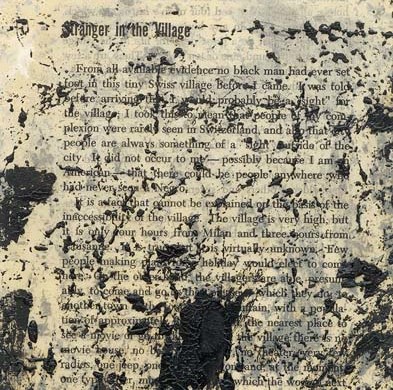 Stranger in the Village
From all available evidence no black man had ever set
foot in this tiny Swiss village before I came. I was told
before arriving that I would probably be a "sight" for
the village; I took this to mean that people of my com-
plexion were rarely seen in Switzerland, and also that city
people are always something of a "sight" outside of the
city. It did not occur to me—possibly because I am an
American—that there could be people anywhere who
had never seen a Negro.
It is a fact that cannot be explained on the basis of the
inaccessibility of the village. The village is very high, but
it is only four hours from Milan and three hours from
Lausanne. It is true that it is virtually unknown. Few
people making plans for a holiday would elect to come
here. On the other hand, the villagers are able, presum-
ably, to come and go as they please—which they do: to
another town at the mountain, with a popula-
tion of approximately the nearest place to
see a movie or go to the village there is no
movie house, no bank, no library, no theater; very few
radios, one jeep, one station wagon; and, at the moment,
one typewriter, mine, which the woman next